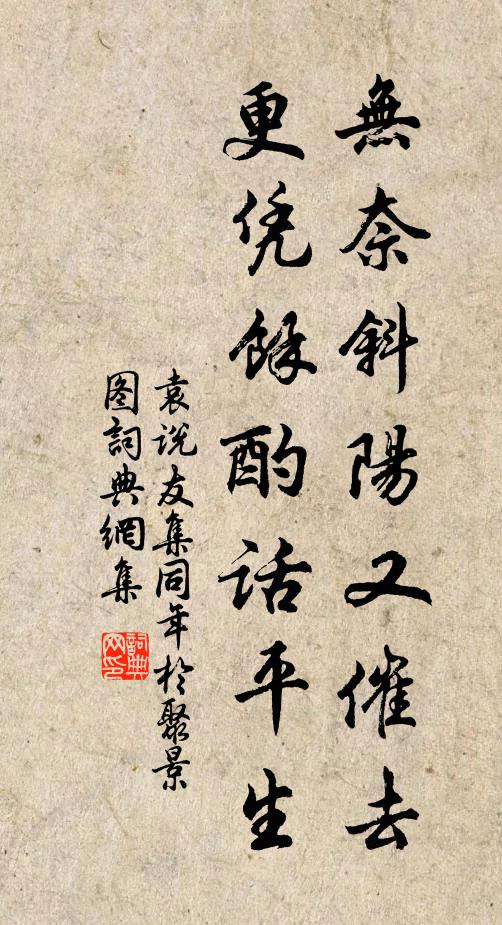 無奈斜陽又催去
更凭餘酌話平生
袁说友集同年於聚景
图詞典網集
詞典网印